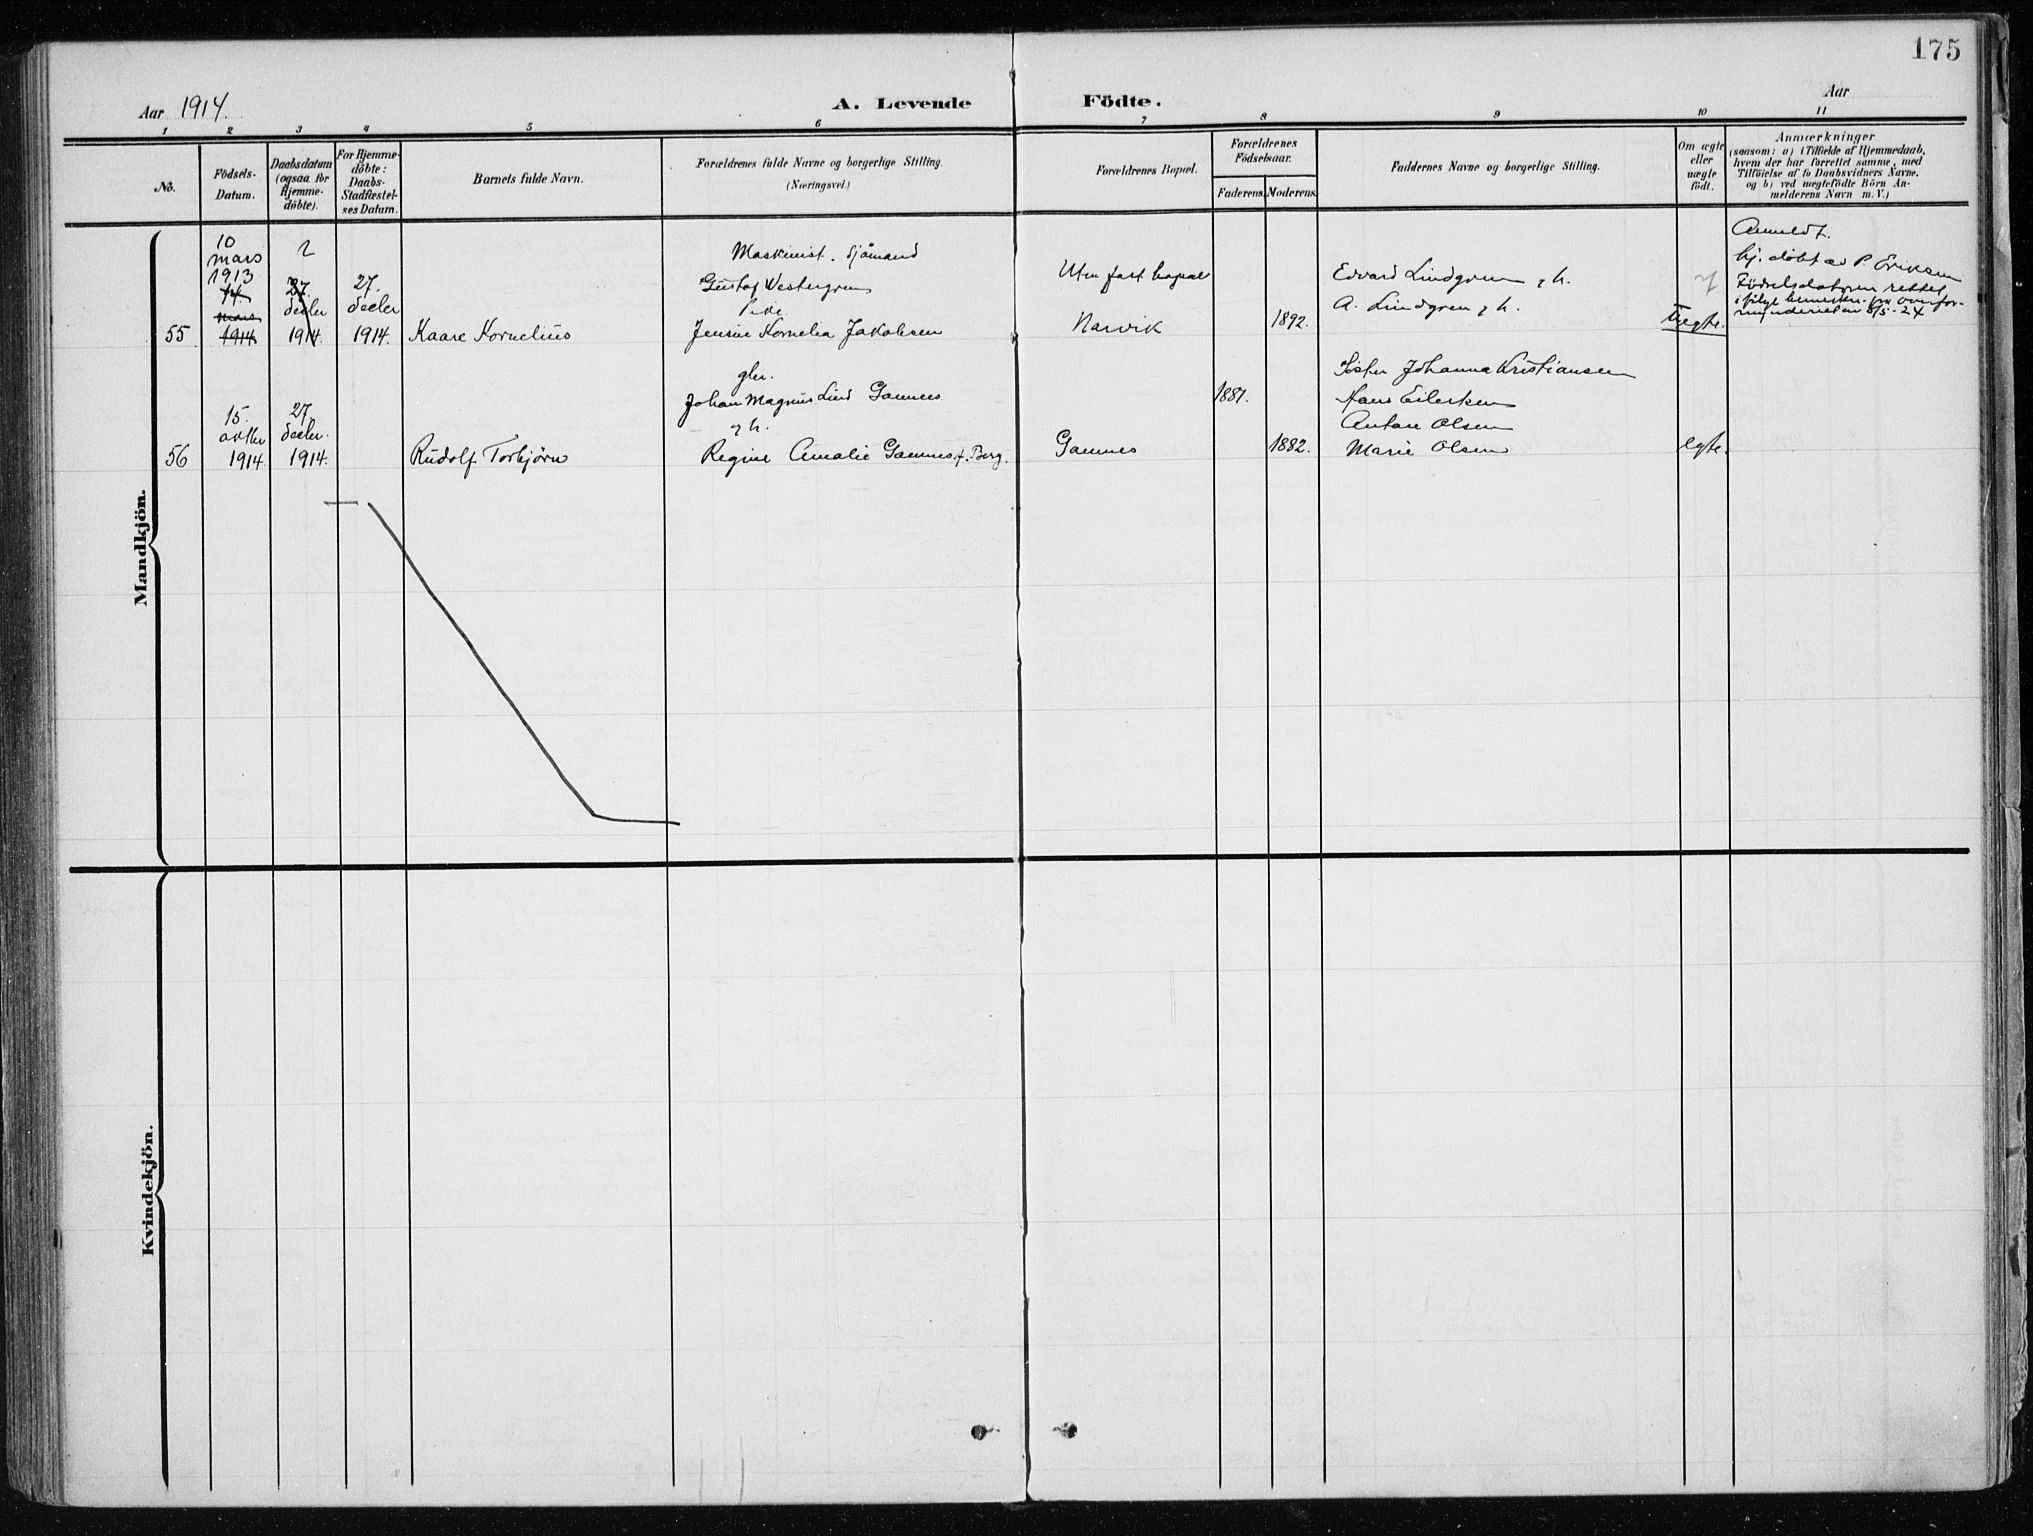 175
Aar 1914.
A. Levende Födte.
Aar
1 2 3 4 5 6 7 8 9 10 11
No.
Födsels-
Datum.
Daabsdatum
(ogsaa for
Hjemme-
döbte).
For Hjemme-
döbte:
Daabs-
Stadfæstel-
ses Datum.
Barnets fulde Navn.
Forældrenes fulde Navne og borgerlige Stilling.
(Næringsvei.)
Forældrenes Bopæl.
Forældrenes
Födselsaar.
Faderens.
Moderens.
Faddernes Navne og borgerlige Stilling.
Om ægte
eller
uægte
födt.
Anmærkninger
(saasom: a) i Tilfælde af Hjemmedaab,
hvem der har forrettet samme, med
Tilföielse af to Daabsvidners Navne,
og b) ved uægtefödte Börn An-
melderens Navn m. V.)
Mandkjön.
55
10
mars
1913
14.
mars
1914
27.
decbr
1914.
27.
decbr
1914.
Kaare Kornelius
Maskinist. Sjömand
Gustaf Westergren
Pike
Jensine Kornelia Jakobsen
Uten fast bopæl
Narvik
1892.
Edvard Lindgren & h.
A. Lindgren & h.
Uegte.
Anmeldt.
hj. döbt av P. Eriksen
Födselsdatoen rettet
i følge bemerkn. fra overfor-
mynderiet av 8/5-24
56
15.
oktbr
1914
27.
decbr.
1914.
Rudolf Torbjørn
gbr.
Johan Magnus Lind Gamnes
& h.
Regine Amalie Gamnes f. Berg.
Gamnes
1887.
1882.
Søster Johanna Kristiansen
Hans Eilertsen
Anton Olsen
Marie Olsen
egte.
Kvindekjön.